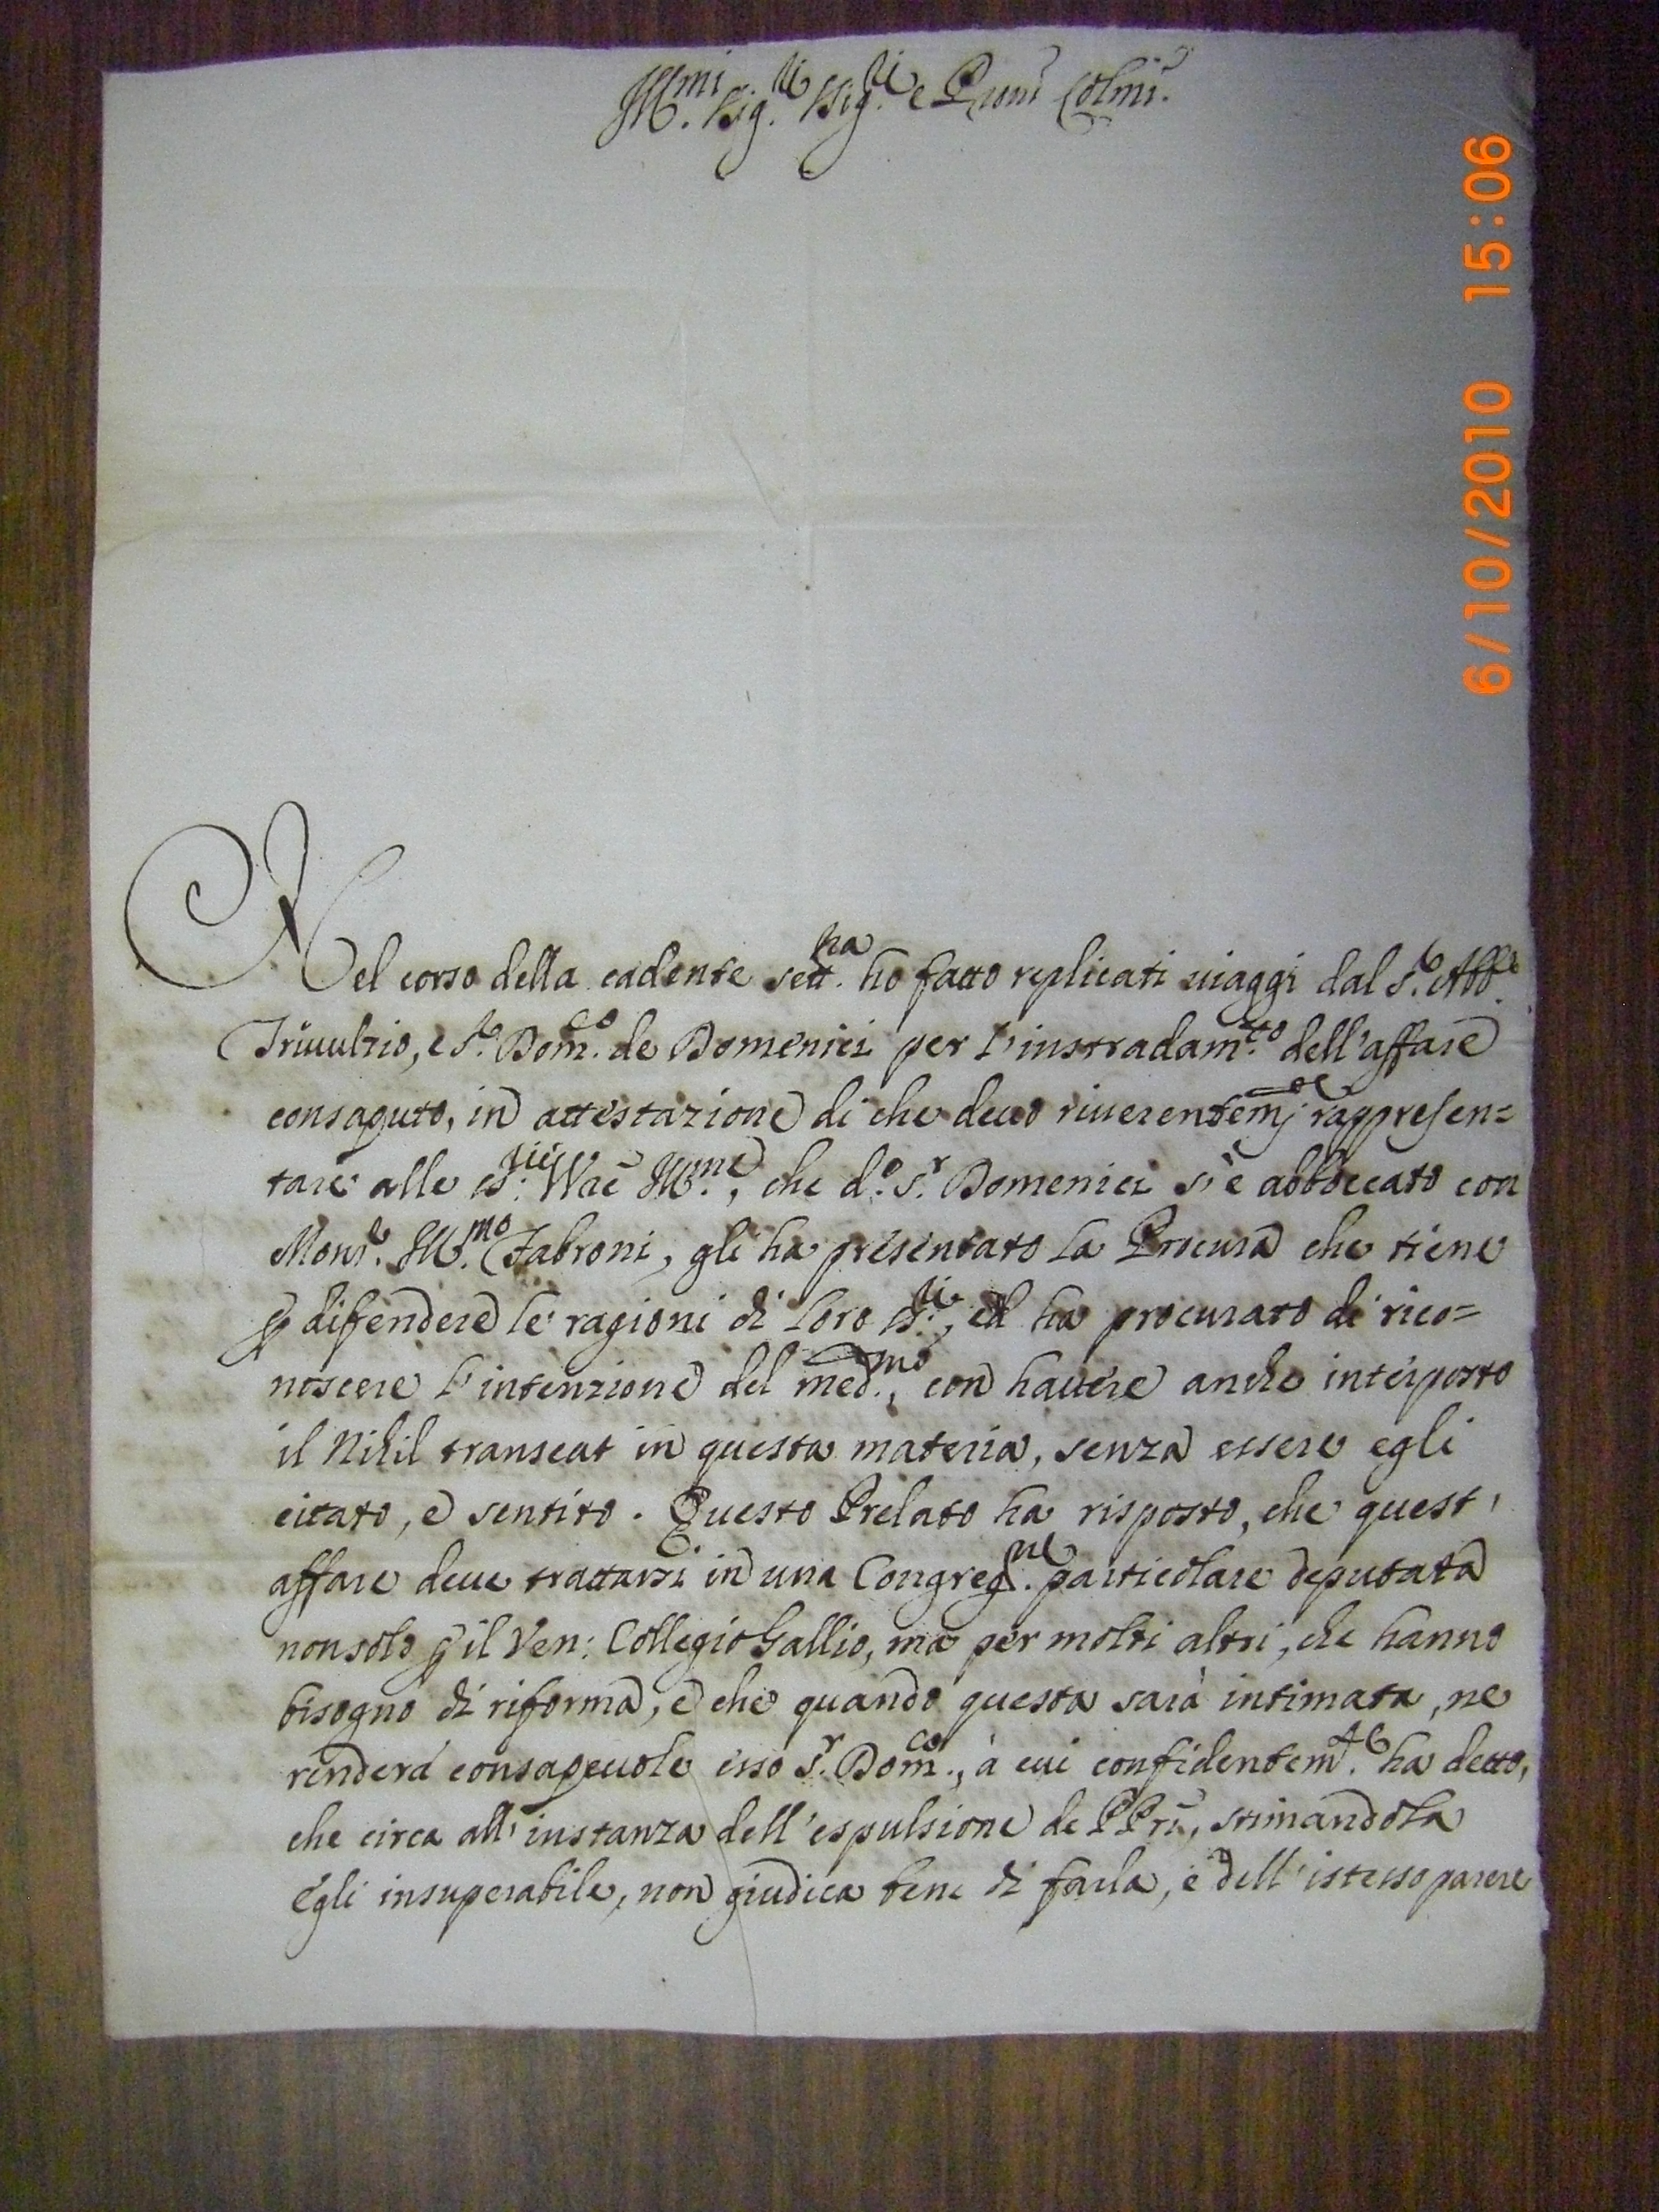 Ill.mi Sig.ri Sig.ri e Pr̃oni Col̃mi.
Nel corso della cadente sett.na ho fatto replicati viaggi dal S.r Abb.e
Trivultio, e S.r Dom.co de Domenici per l'instradam.to dell'affare
consaputo, in attestazione di che devo riverentem.te rappresen=
tare alle SS.rie Vr̃e Ill.me, che d.o S.r Domenici s'è abboccato con
Mons.r Ill.mo Fabroni, gli ha presentato la Procura che tiene
p difendere le ragioni di loro SS.ri, ed ha procurato di rico=
noscere l'intenzione del med.mo, con havere anche interposto
il Nihil transeat in questa materia, senza essere egli
citato, e sentito. Questo Prelato ha risposto, che quest'
affare deve trattarsi in una Congreg.ne particolare deputata
non solo p il Ven: Collegio Gallio, ma per molti altri, che hanno
bisogno di riforma, e che quando questa sarà intimata, ne
renderà consapevole esso S.r Dom.co, à cui confidentem.te ha detto,
che circa all'instanza dell'espulsione de PPri, stimandola
egli insuperabile, non giudica bene di farla, e dell'istesso parere
6/10/2010 15:06